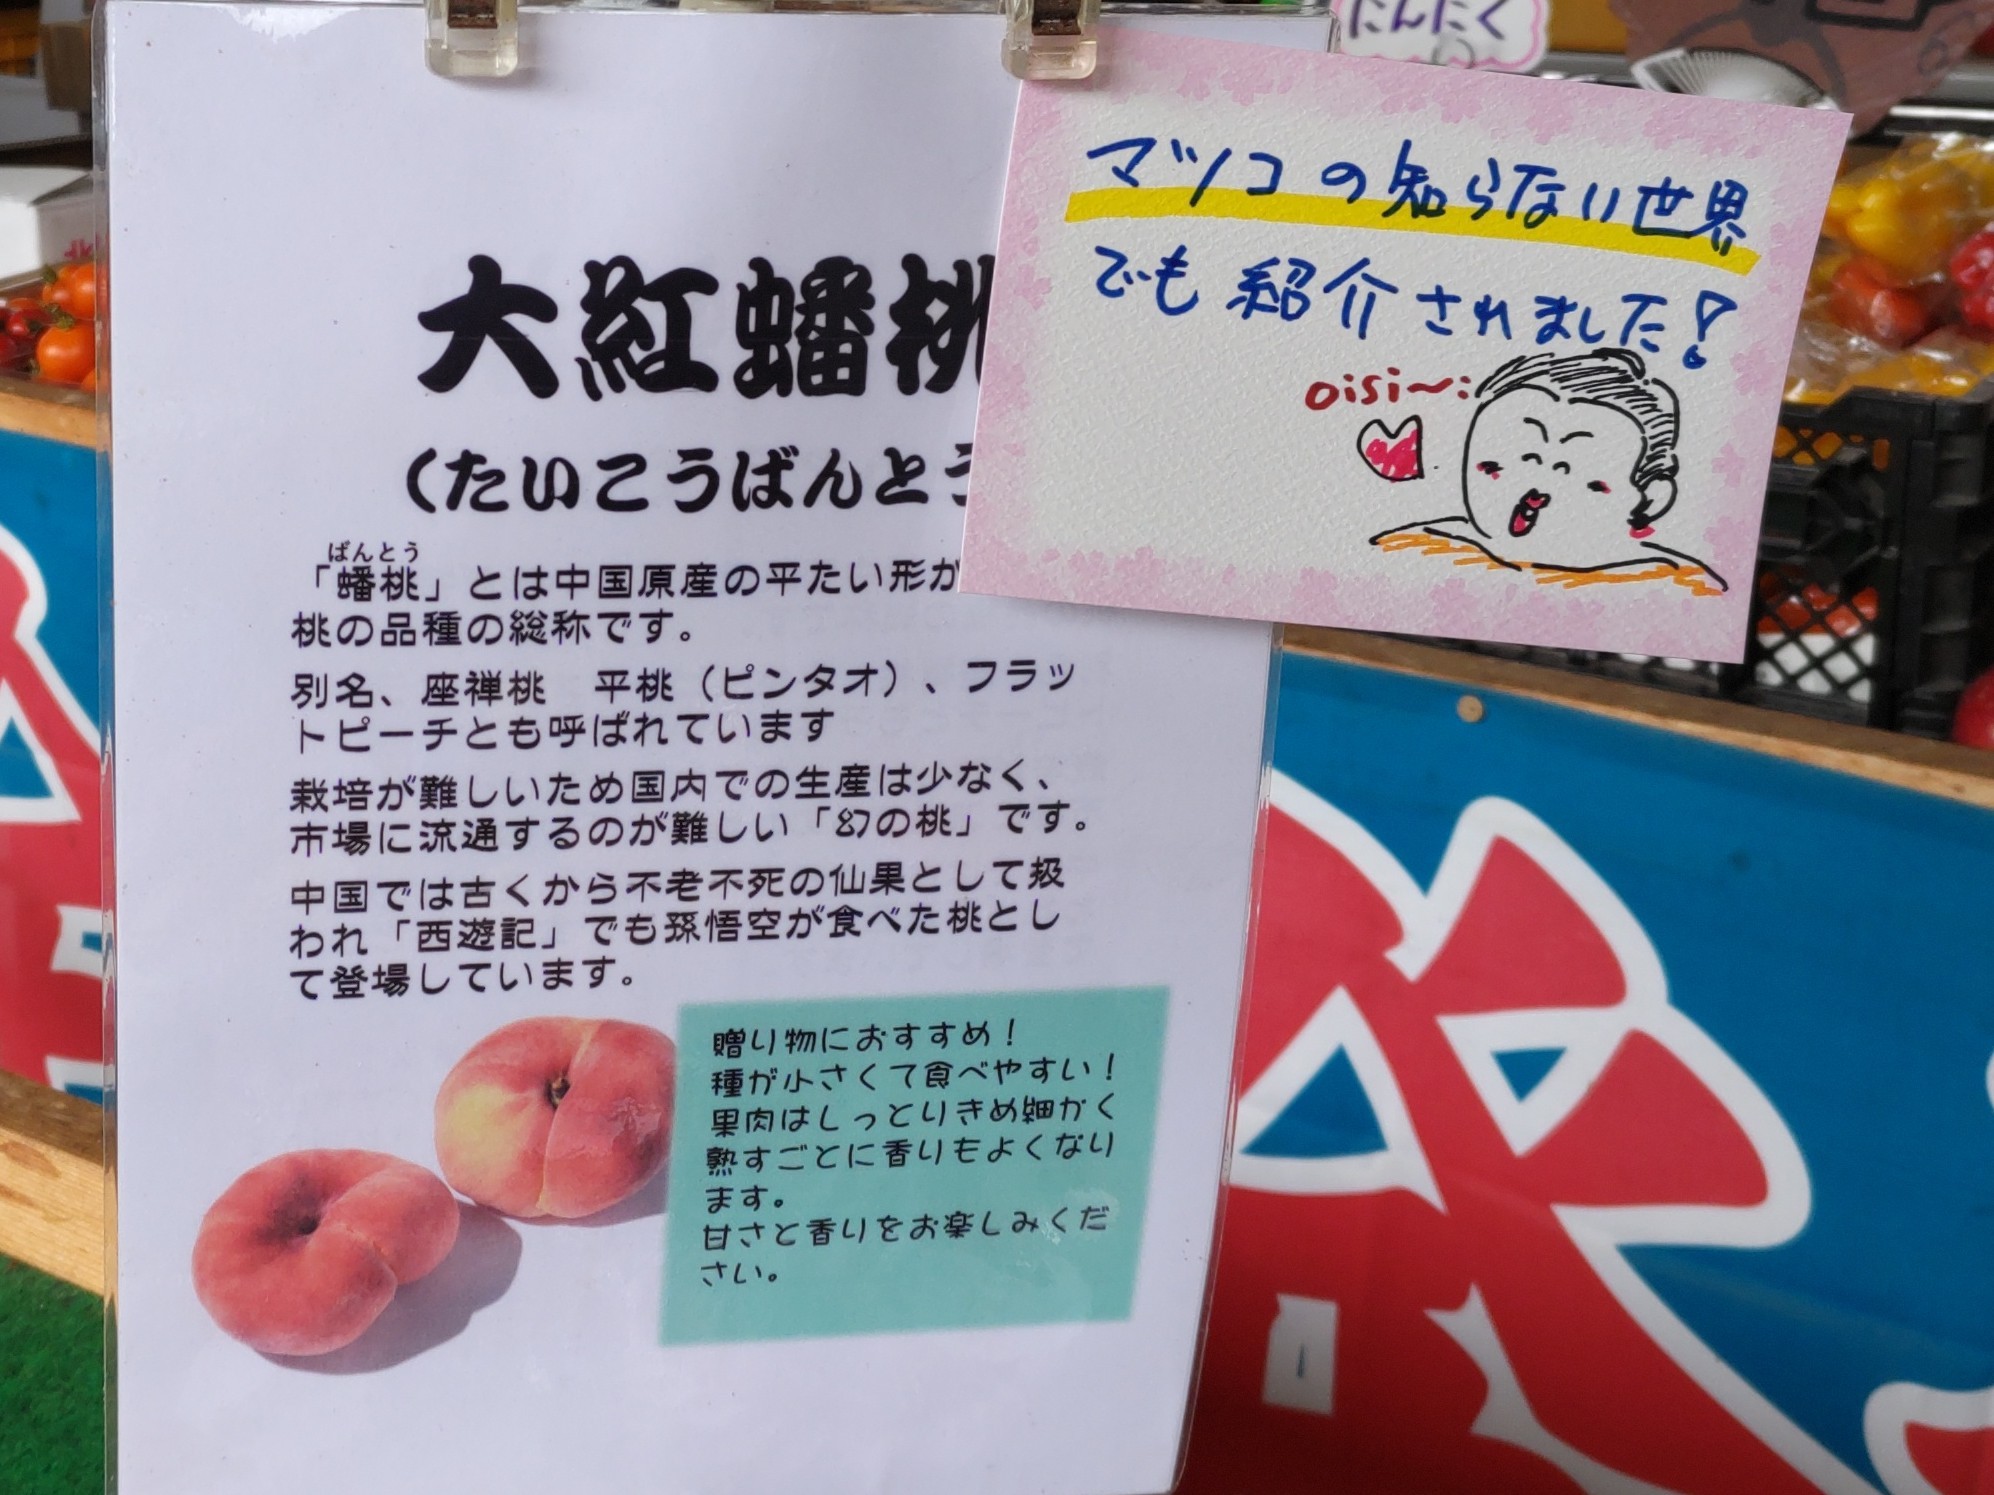 にんにく
マツコの知らない世界
でも紹介されました!
oisi〜:
大紅蟠桃
(たいこうばんとう
ばんとう
「蟠桃」とは中国原産の平たい形が
桃の品種の総称です。
別名、座禅桃　平桃（ピンタオ）、フラッ
トピーチとも呼ばれています
栽培が難しいため国内での生産は少なく、
市場に流通するのが難しい「幻の桃」です。
中国では古くから不老不死の仙果として扱
われ「西遊記」でも孫悟空が食べた桃とし
て登場しています。
贈り物におすすめ！
種が小さくて食べやすい！
果肉はしっとりきめ細かく
熟すごとに香りもよくなり
ます。
甘さと香りをお楽しみくだ
さい。